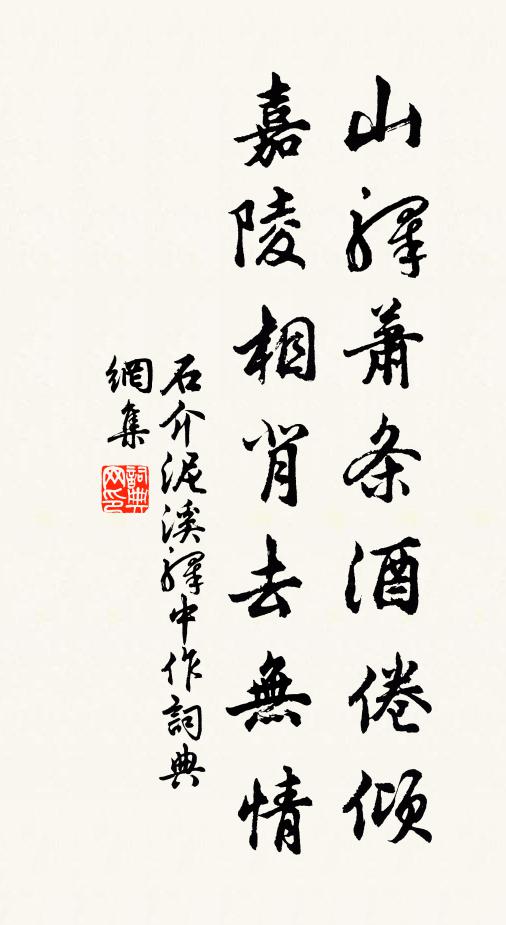 山驛萧条酒倦傾
嘉陵相背去無情
石介泥溪驛中作詞典
網集
詞典網印